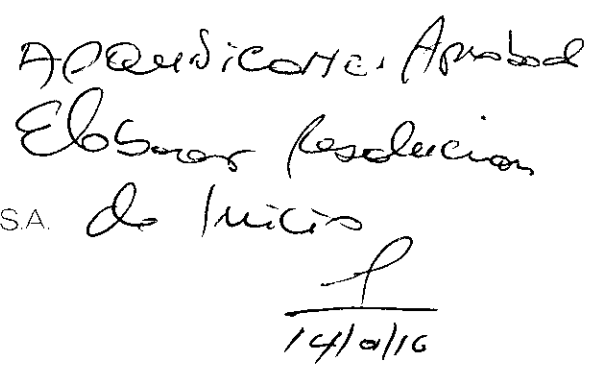 A Jurídico. Aprobad
Elaborar Resolucion
S.A. de Inicio
14/01/16